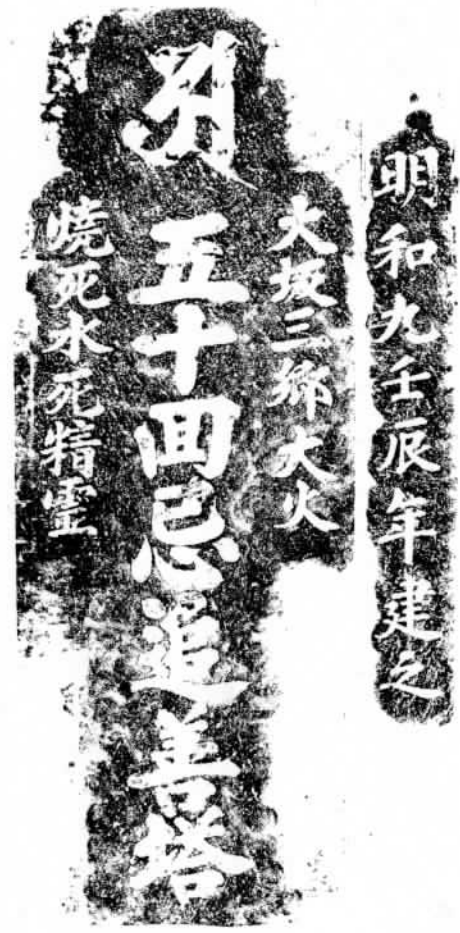 明和九壬辰年建之
大坂三郷大火
五十回忌追善塔
焼死水死精霊